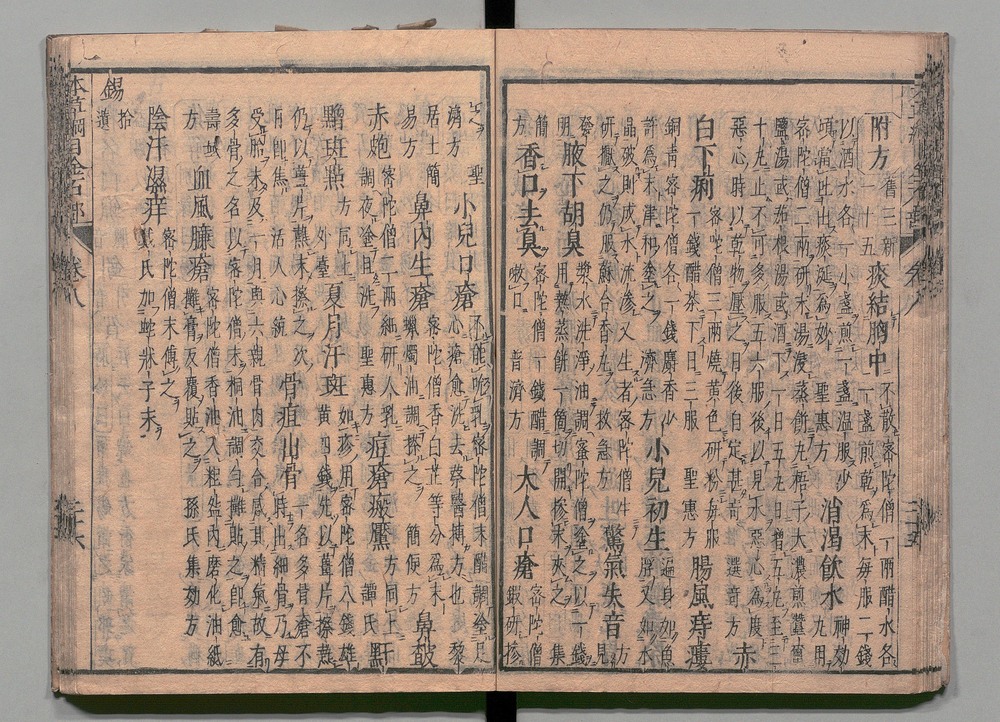 附方 舊三新一十五 痰結胸中 不散密陀僧一兩醋水各一盞煎乾爲末每服二錢
以酒水各一小盞煎一盞温服少頃當吐出痰涎爲妙 聖惠方 消渴飲水 神効丸用
密陀僧二兩研末湯浸蒸餅丸梧子大濃煎蠶繭鹽湯或茄根湯或酒下一日五丸日增五丸至三
十丸止不可多服五六服後以見水惡心爲度惡心時以乾物壓之日後自定甚奇 選奇方 赤
白下痢 密陀僧三兩燒黃色研粉每服一錢醋茶下日三服 聖惠方 腸風痔瘻
銅青密陀僧各一錢麝香少許爲末津和塗之 濟急方 小兒初生 遍身如魚脬又如水
晶破則成水流滲又生者密陀僧生研擦之仍服蘇合香丸 救急方 驚氣失音 方見發
明 腋下胡臭 漿水洗淨油調密陀僧塗之以一錢用熱蒸餅一箇切開摻末夾之 集簡
方 香口去臭 密陀僧一錢醋調漱口 普濟方 大人口瘡 密陀僧煅研摻
之 聖濟方 小兒口瘡 不能吮乳密陀僧末醋調塗足心瘡愈洗去蔡醫博方也 黎
居士簡易方 鼻內生瘡 密陀僧香白芷等分爲末蠟燭油調搽之 簡便方 鼻皶
赤皰 密陀僧二兩細研人乳調夜塗旦洗 聖惠方 痘瘡瘢黶 方同上 譚氏 䵟
䵳斑點 方同上 外臺 夏月汗斑 如疹用密陀僧八錢雄黃四錢先以薑片擦熱
仍以薑片蘸末擦之次日卽焦 活人心統 骨疽出骨 一名多骨瘡不時出細骨乃母
受胎未及一月與六親骨肉交合感其精氣故有多骨之名以密陀僧末桐油調勻攤貼之卽愈
壽域方 血風臁瘡 密陀僧香油入粗盌內磨化油紙攤膏反覆貼之 孫氏集効方
陰汗濕痒 密陀僧末傅之戴氏加蛇牀子末
錫 拾遺
本草綱目金石部 卷八 三十六